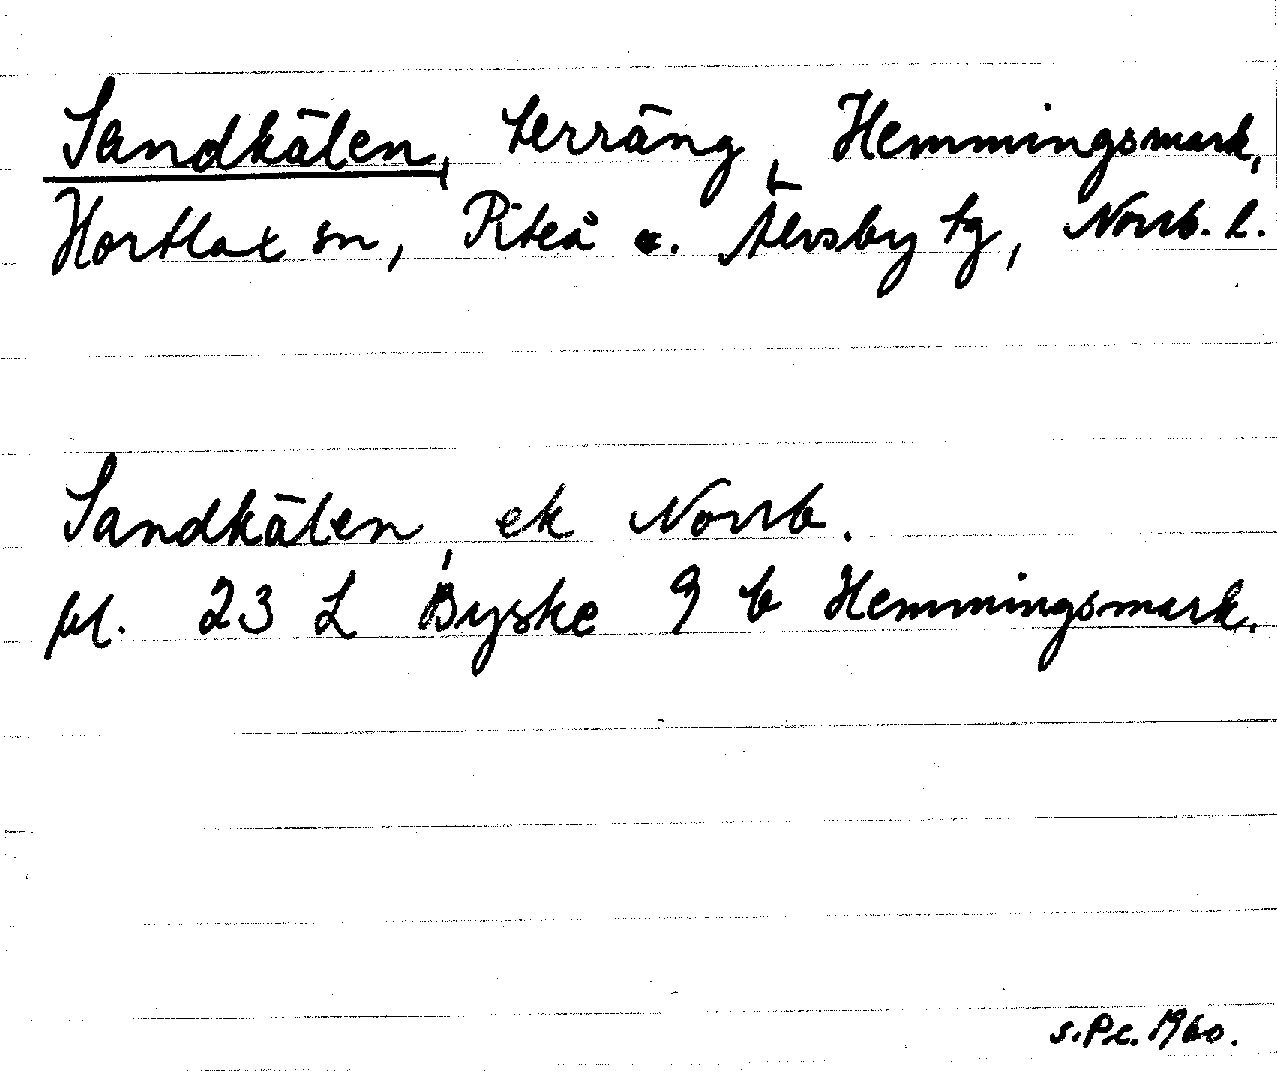 Sandkälen, terräng, Hemmingsmark,
Hortlax sn, Piteå o. Älvsby tg, Norrb. l.
Sandkälen, ek Norrb.
bl. 23 L Byske 9 b Hemmingsmark.
S.Pc. 1960.